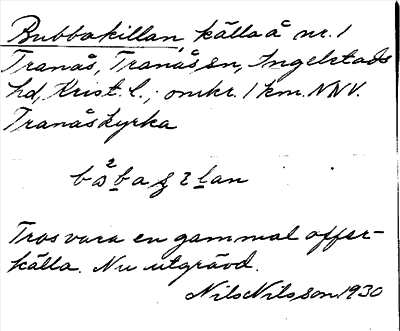 Bubbakillan, källa å nr. 1
Tranås, Tranås sn, Ingelstads
hd, Krist. l.; omkr. 1 km. NNV.
Tranås kyrka
Tros vara en gammal offer-
källa. Nu utgrävd.
Nils Nilsson 1930